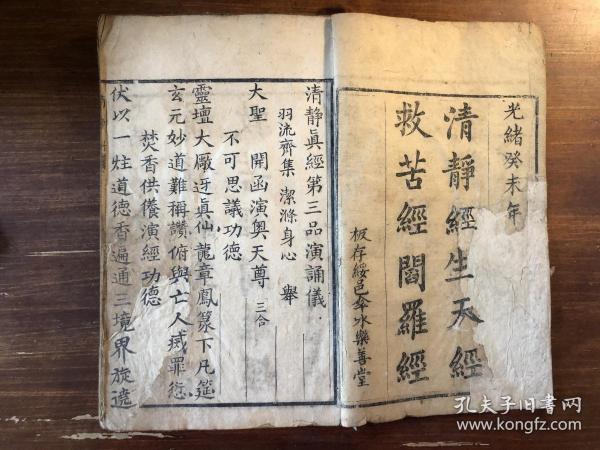 光緒癸未年
清靜經生天經
救苦經閻羅經
板存綏邑傘水樂善堂
清靜真經第三品演誦儀
羽流齊集 潔滌身心 舉
大聖 開函演奧天尊 三合
不可思議功德
靈壇大厰迓真仙龍章鳳篆下凡筵
玄元妙道難稱讚俯與亡人烕罪愆
焚香供養演經功德
伏以一炷道德香遍通三境界旋遶
孔夫子旧书网
www.kongfz.com